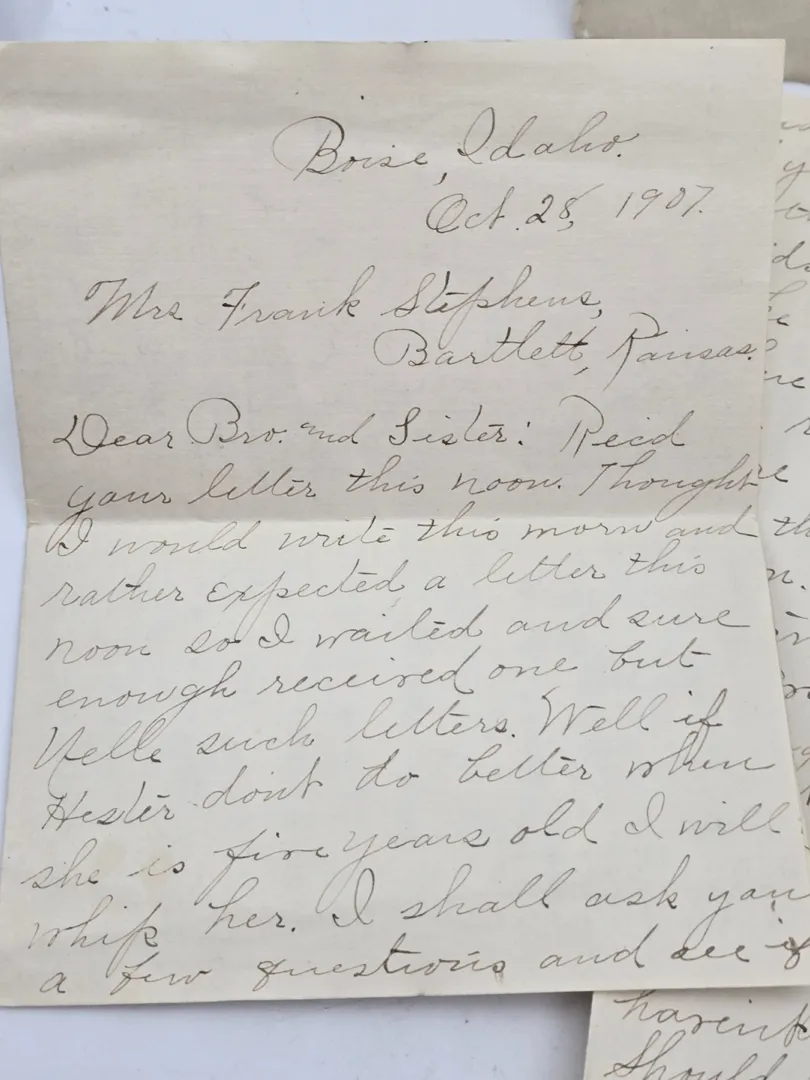 Boise, Idaho.
Oct. 28, 1907.
Mrs Frank Stephens,
Bartlett, Kansas.
Dear Bro. and Sister: Recd
your letter this noon. Thought
I would write this morn and
rather expected a letter this
noon so I waited and sure
enough received one but
Nelle such letters. Well if
Hester dont do better when
she is five years old I will
whip her. I shall ask you
a few questions and see if
havent
Should